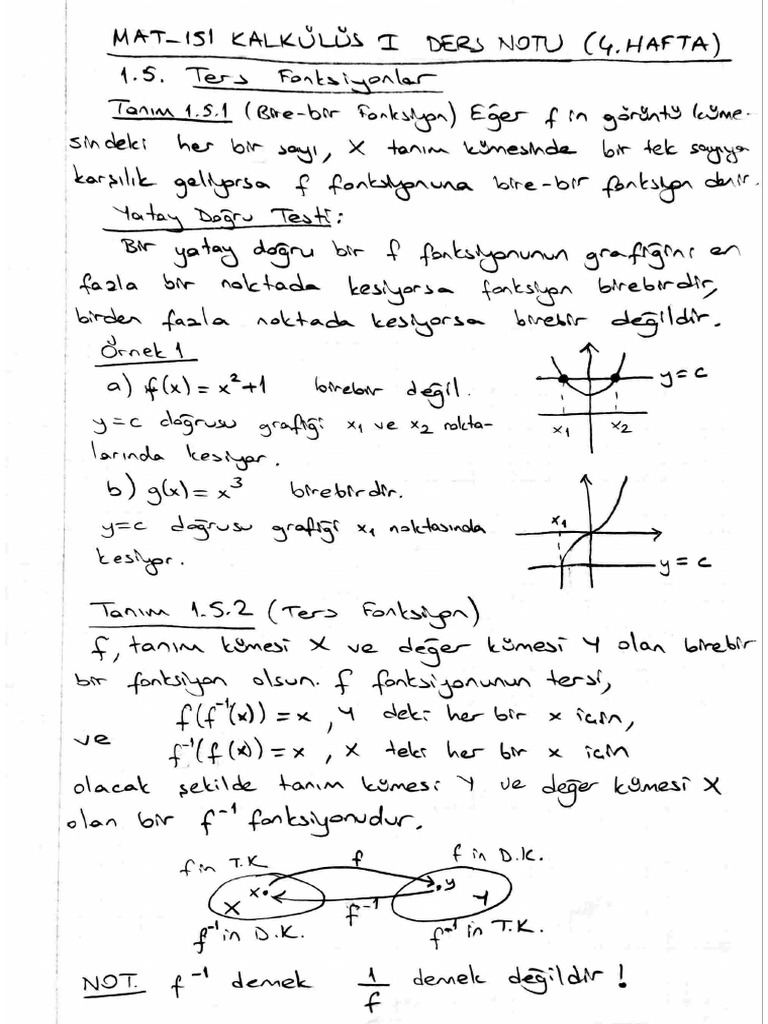 MAT-151 KALKÜLÜS I DERS NOTU (4.HAFTA)
1.5. Ters Fonksiyonlar
Tanım 1.5.1 (Bire-bir Fonksiyon) Eğer f in görüntü küme-
sindeki her bir sayı, X tanım kümesinde bir tek sayıya
karşılık geliyorsa f fonksiyonuna bire-bir fonksiyon denir.
Yatay Doğru Testi:
Bir yatay doğru bir f fonksiyonunun grafiğini en
fazla bir noktada kesiyorsa fonksiyon birebirdir,
birden fazla noktada kesiyorsa birebir değildir.
Örnek 1
a) f(x) = x²+1 birebir değil.
y=c
y=c doğrusu grafiği x₁ ve x₂ nokta-
x₁ x₂
larında kesiyor.
b) g(x) = x³ birebirdir.
y=c doğrusu grafiği x₁ noktasında
x₁
kesiyor.
y=c
Tanım 1.5.2 (Ters Fonksiyon)
f, tanım kümesi X ve değer kümesi Y olan birebir
bir fonksiyon olsun. f fonksiyonunun tersi,
f(f⁻¹(x)) = x , Y deki her bir x için,
ve
f⁻¹(f(x)) = x , X teki her bir x için
olacak şekilde tanım kümesi Y ve değer kümesi X
olan bir f⁻¹ fonksiyonudur.
f in T.K f f in D.K.
x y
X f⁻¹ Y
f⁻¹ in D.K. f⁻¹ in T.K.
NOT. f⁻¹ demek 1/f demek değildir !